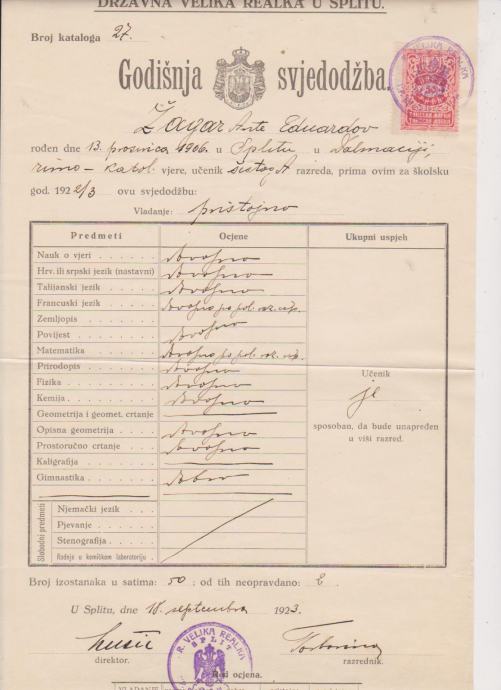 DRŽAVNA VELIKA REALKA U SPLITU.
Broj kataloga 27.
Godišnja svjedodžba.
Žagar Ante Eduardov
rođen dne 13. prosinca 1906. u Splitu u Dalmaciji,
rimo-katol. vjere, učenik šestog A razreda, prima ovim za školsku
god. 1922/3 ovu svjedodžbu:
Vladanje: pristojno
Predmeti Ocjene Ukupni uspjeh
Nauk o vjeri dovoljno
Hrv. ili srpski jezik (nastavni) dovoljno
Talijanski jezik dovoljno
Francuski jezik dovoljno po pol.
Zemljopis
Povijest dovoljno
Matematika dovoljno po pol.
Prirodopis dovoljno
Fizika dovoljno
Kemija dovoljno
Geometrija i geomet. crtanje
Opisna geometrija dovoljno
Prostoručno crtanje dovoljno
Kaligrafija
Gimnastika dobro
Učenik
je
sposoban, da bude unapređen
u viši razred.
Slobodni predmeti
Njemački jezik
Pjevanje
Stenografija
Radnje u kemičkom laboratoriju
Broj izostanaka u satima: 50 : od tih neopravdano:
U Splitu, dne 18. septembra 1923.
R. VELIKA REALKA
SPLIT
direktor. razrednik.
Red ocjena.